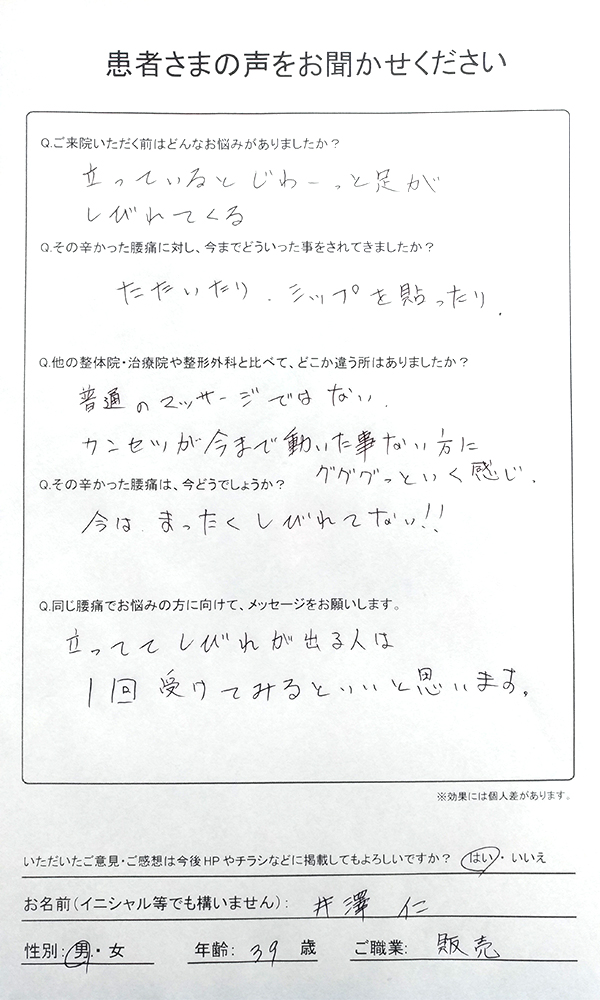 患者さまの声をお聞かせください
Q.ご来院いただく前はどんなお悩みがありましたか？
立っているとじわーっと足が
しびれてくる
Q.その辛かった腰痛に対し、今までどういった事をされてきましたか？
たたいたり、シップを貼ったり.
Q.他の整体院・治療院や整形外科と比べて、どこか違う所はありましたか？
普通のマッサージではない.
カンセツが今まで動いた事ない方に
グググっといく感じ.
Q.その辛かった腰痛は、今どうでしょうか？
今は、まったくしびれてない!!
Q.同じ腰痛でお悩みの方に向けて、メッセージをお願いします。
立っててしびれが出る人は
1回受けてみるといいと思います。
※効果には個人差があります。
いただいたご意見・ご感想は今後HPやチラシなどに掲載してもよろしいですか？ はい・いいえ
お名前（イニシャル等でも構いません）： 井澤 仁
性別：男・女 年齢：39 歳 ご職業： 販売